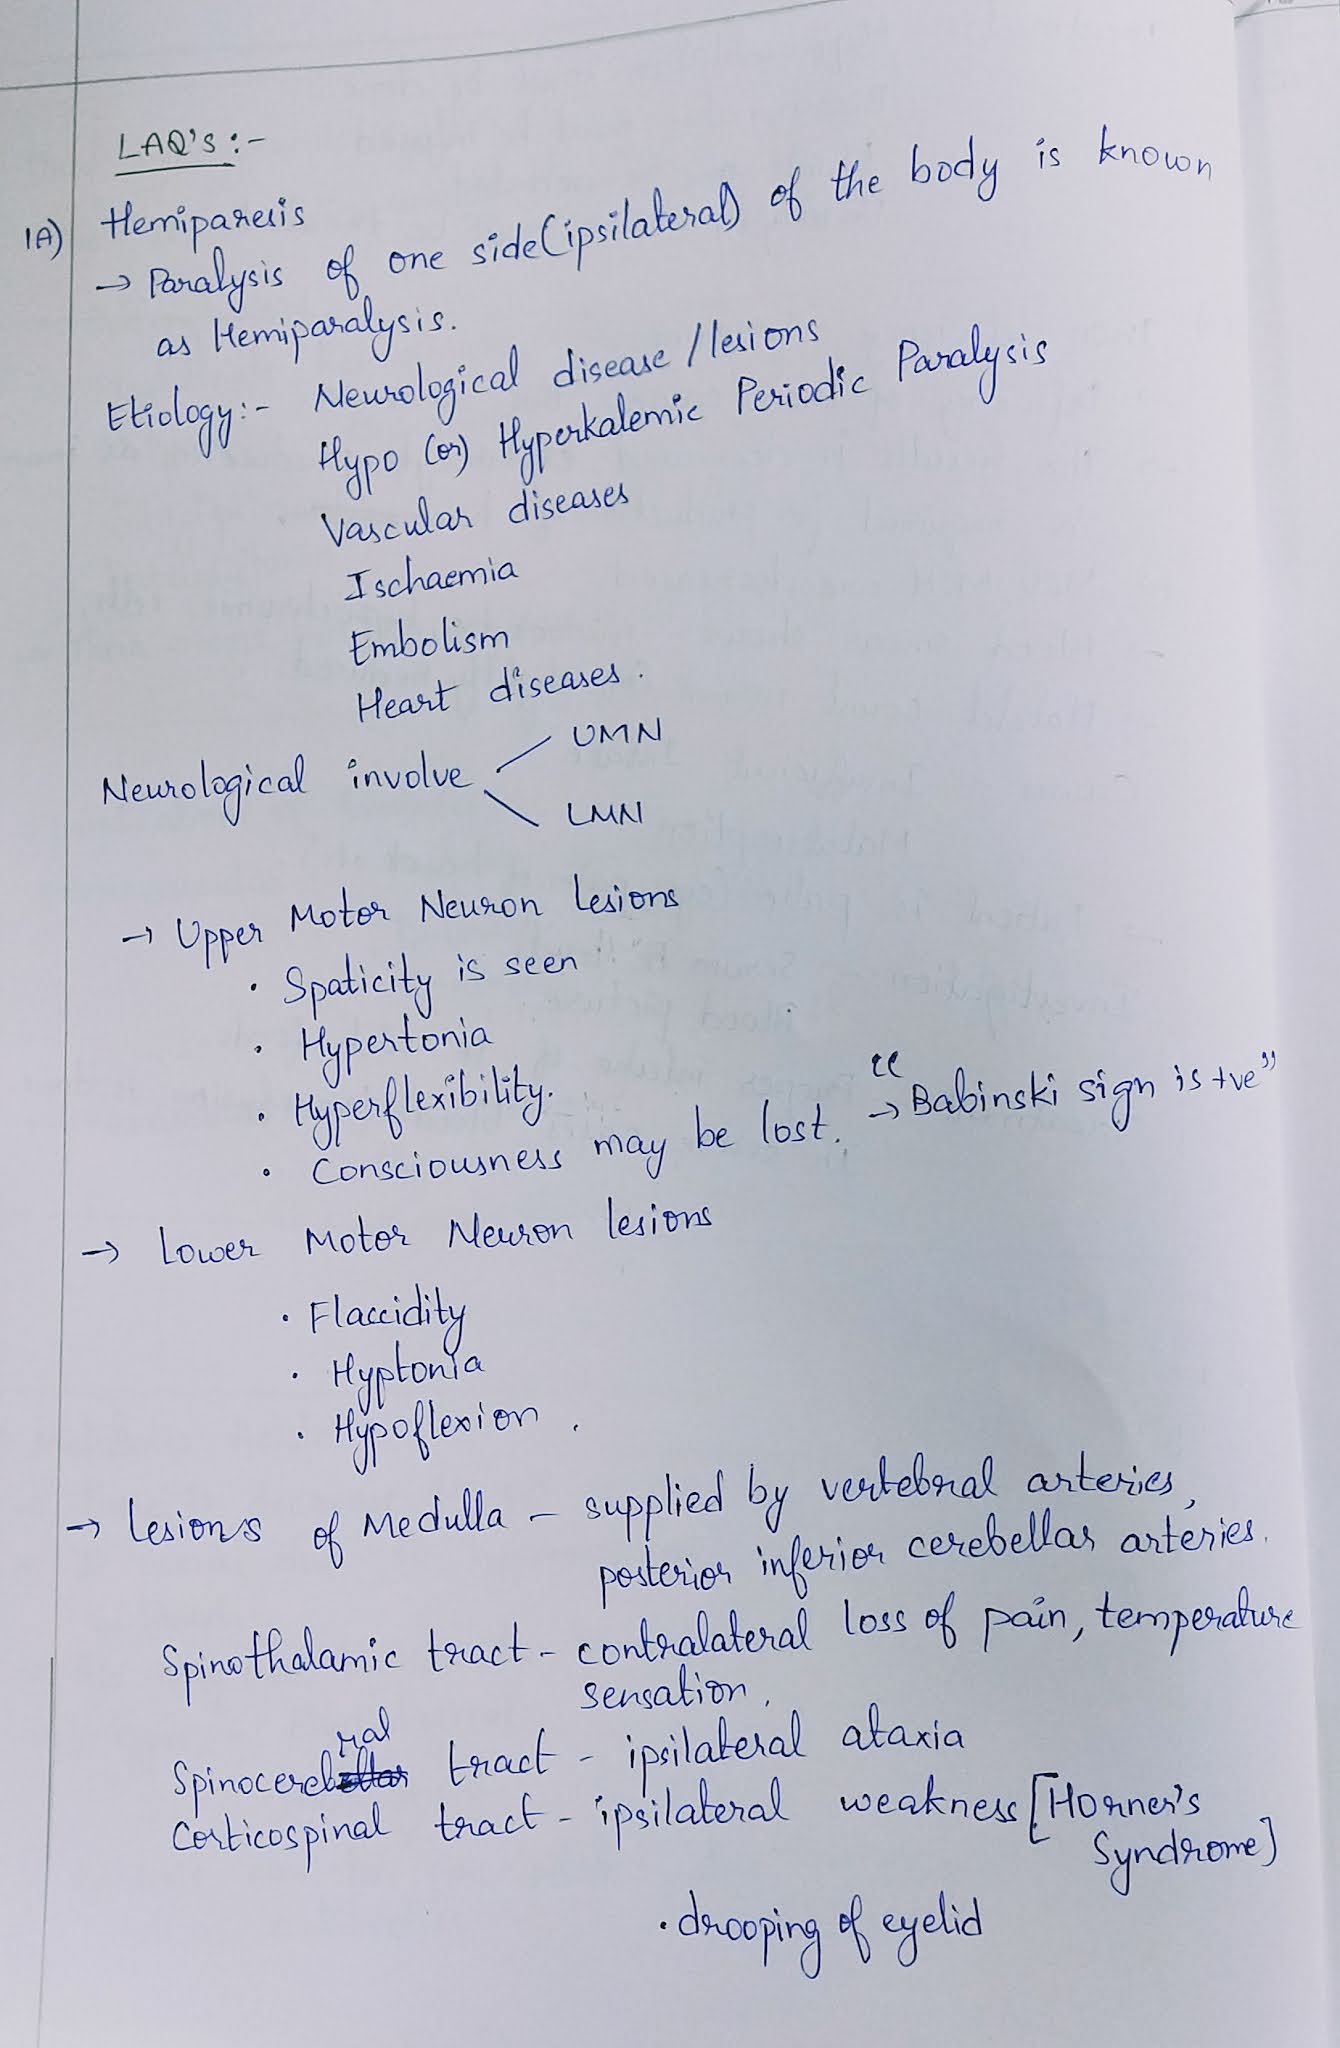 LAQ's :-
1A) Hemiparesis
→ Paralysis of one side (ipsilateral) of the body is known
as Hemiparalysis.
Etiology :- Neurological disease / lesions
Hypo (or) Hyperkalemic Periodic Paralysis
Vascular diseases
Ischaemia
Embolism
Heart diseases.
Neurological involve
UMN
LMN
→ Upper Motor Neuron Lesions
• Spaticity is seen
• Hypertonia
• Hyperflexibility.
• Consciousness may be lost. → "Babinski sign is +ve"
→ Lower Motor Neuron lesions
• Flaccidity
• Hyptonia
• Hypoflexion.
→ Lesions of Medulla - supplied by vertebral arteries,
posterior inferior cerebellar arteries.
Spinothalamic tract - contralateral loss of pain, temperature
sensation.
Spinocerebral tract - ipsilateral ataxia
Corticospinal tract - ipsilateral weakness [Horner's
Syndrome]
• drooping of eyelid